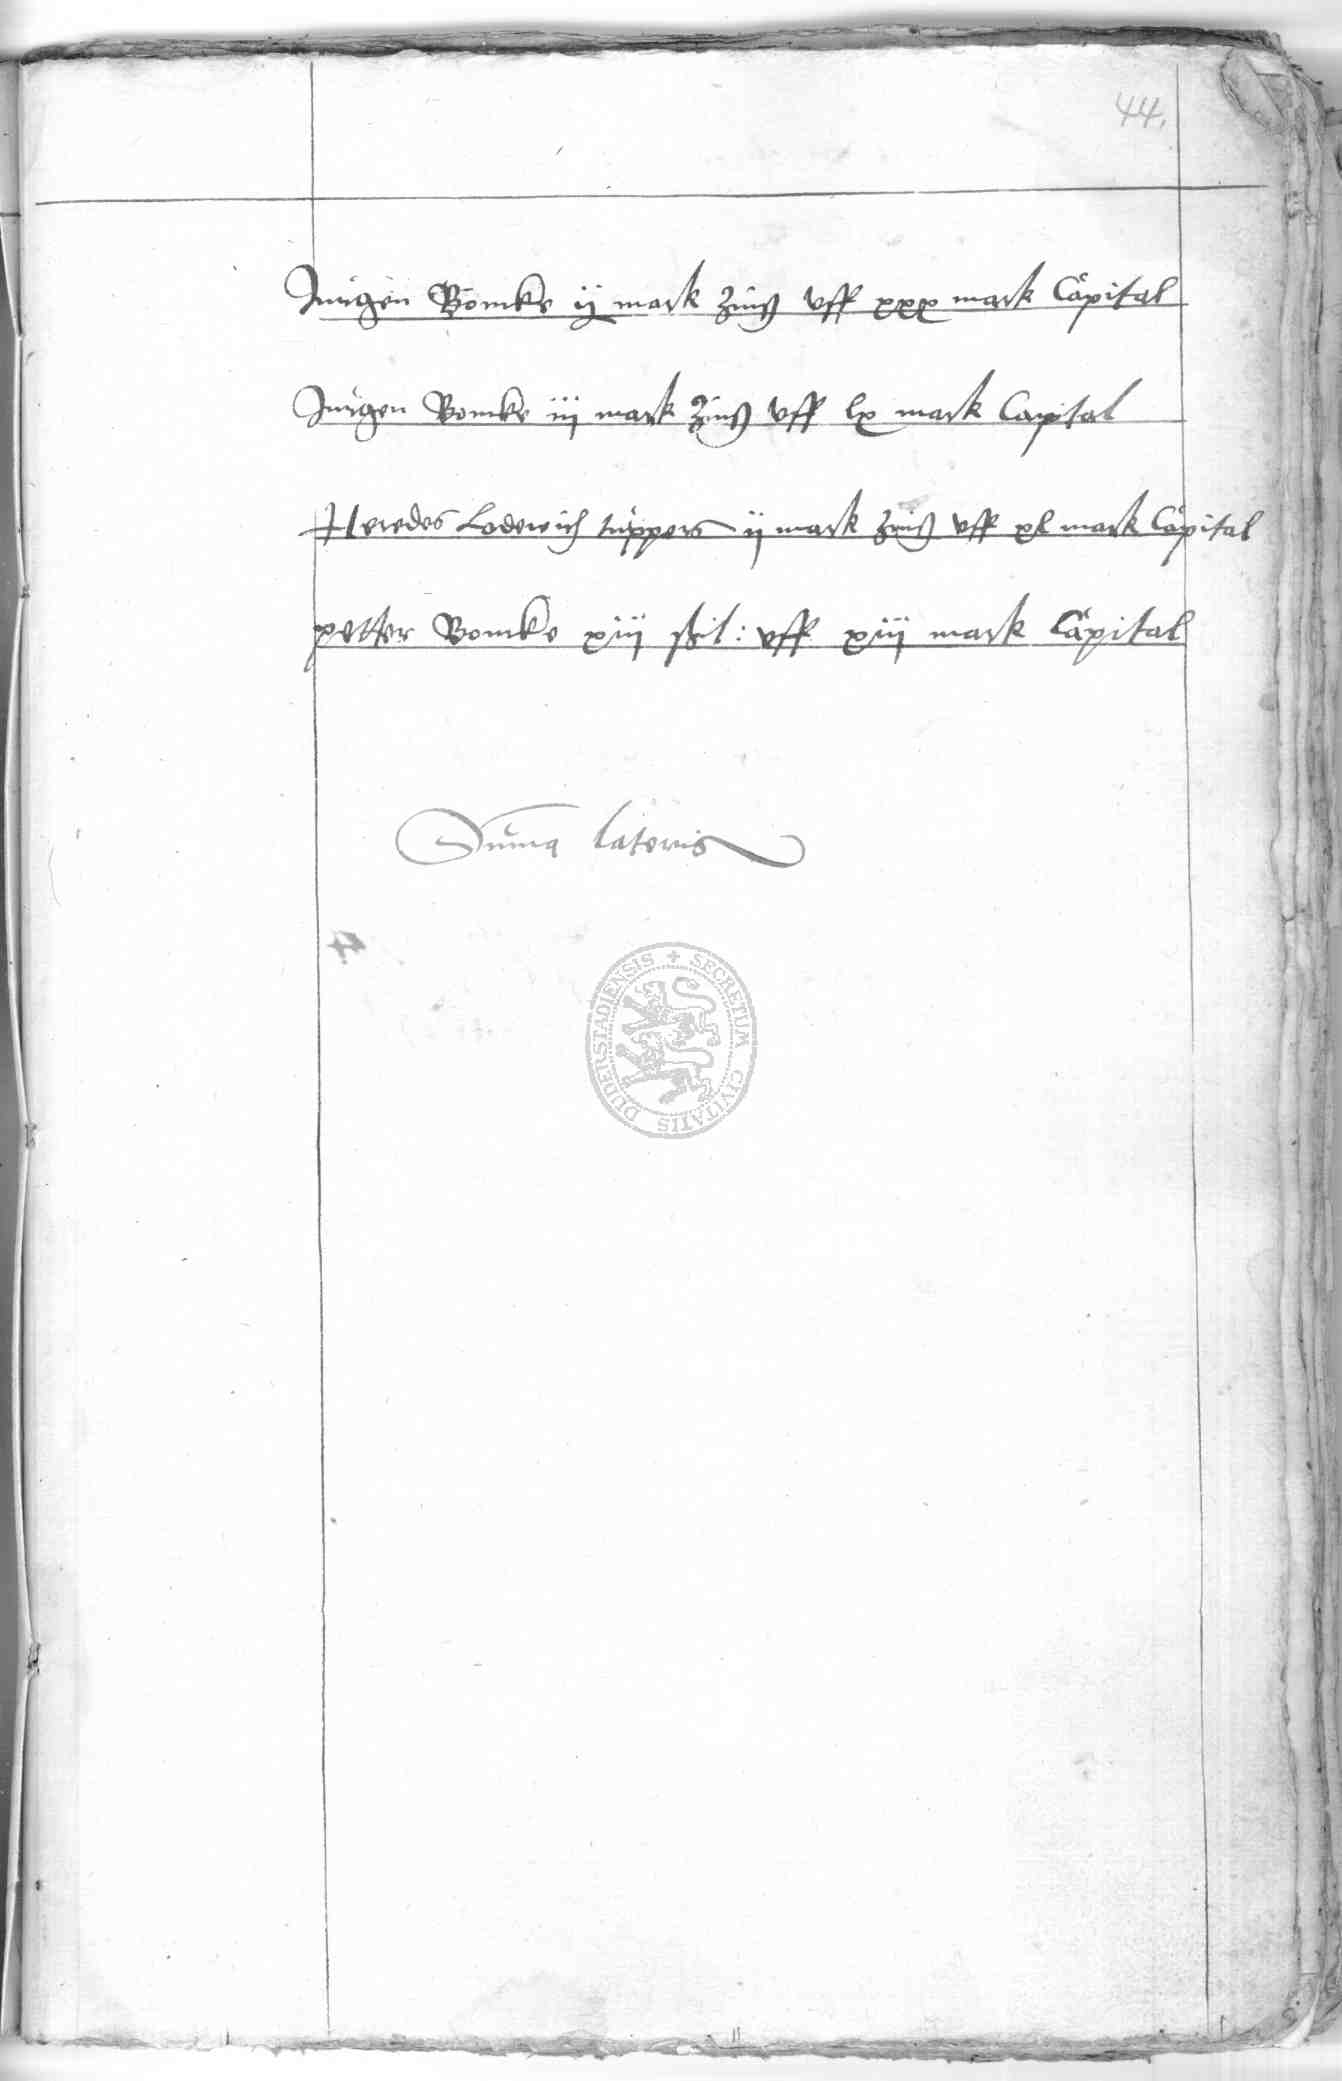 44.
Jurgen Bomke ij mark Zinß vff xxx mark Capital
Jurgen Bomke iij mark Zinß vff lx mark Capital
Heredes Lodewich tuppers ij mark Zinß vff xl mark Capital
petter Bomke xiij ßil: vff xiij mark Capital
Suma lateris
SECRETUM CIVITATIS DUDERSTADIENSIS